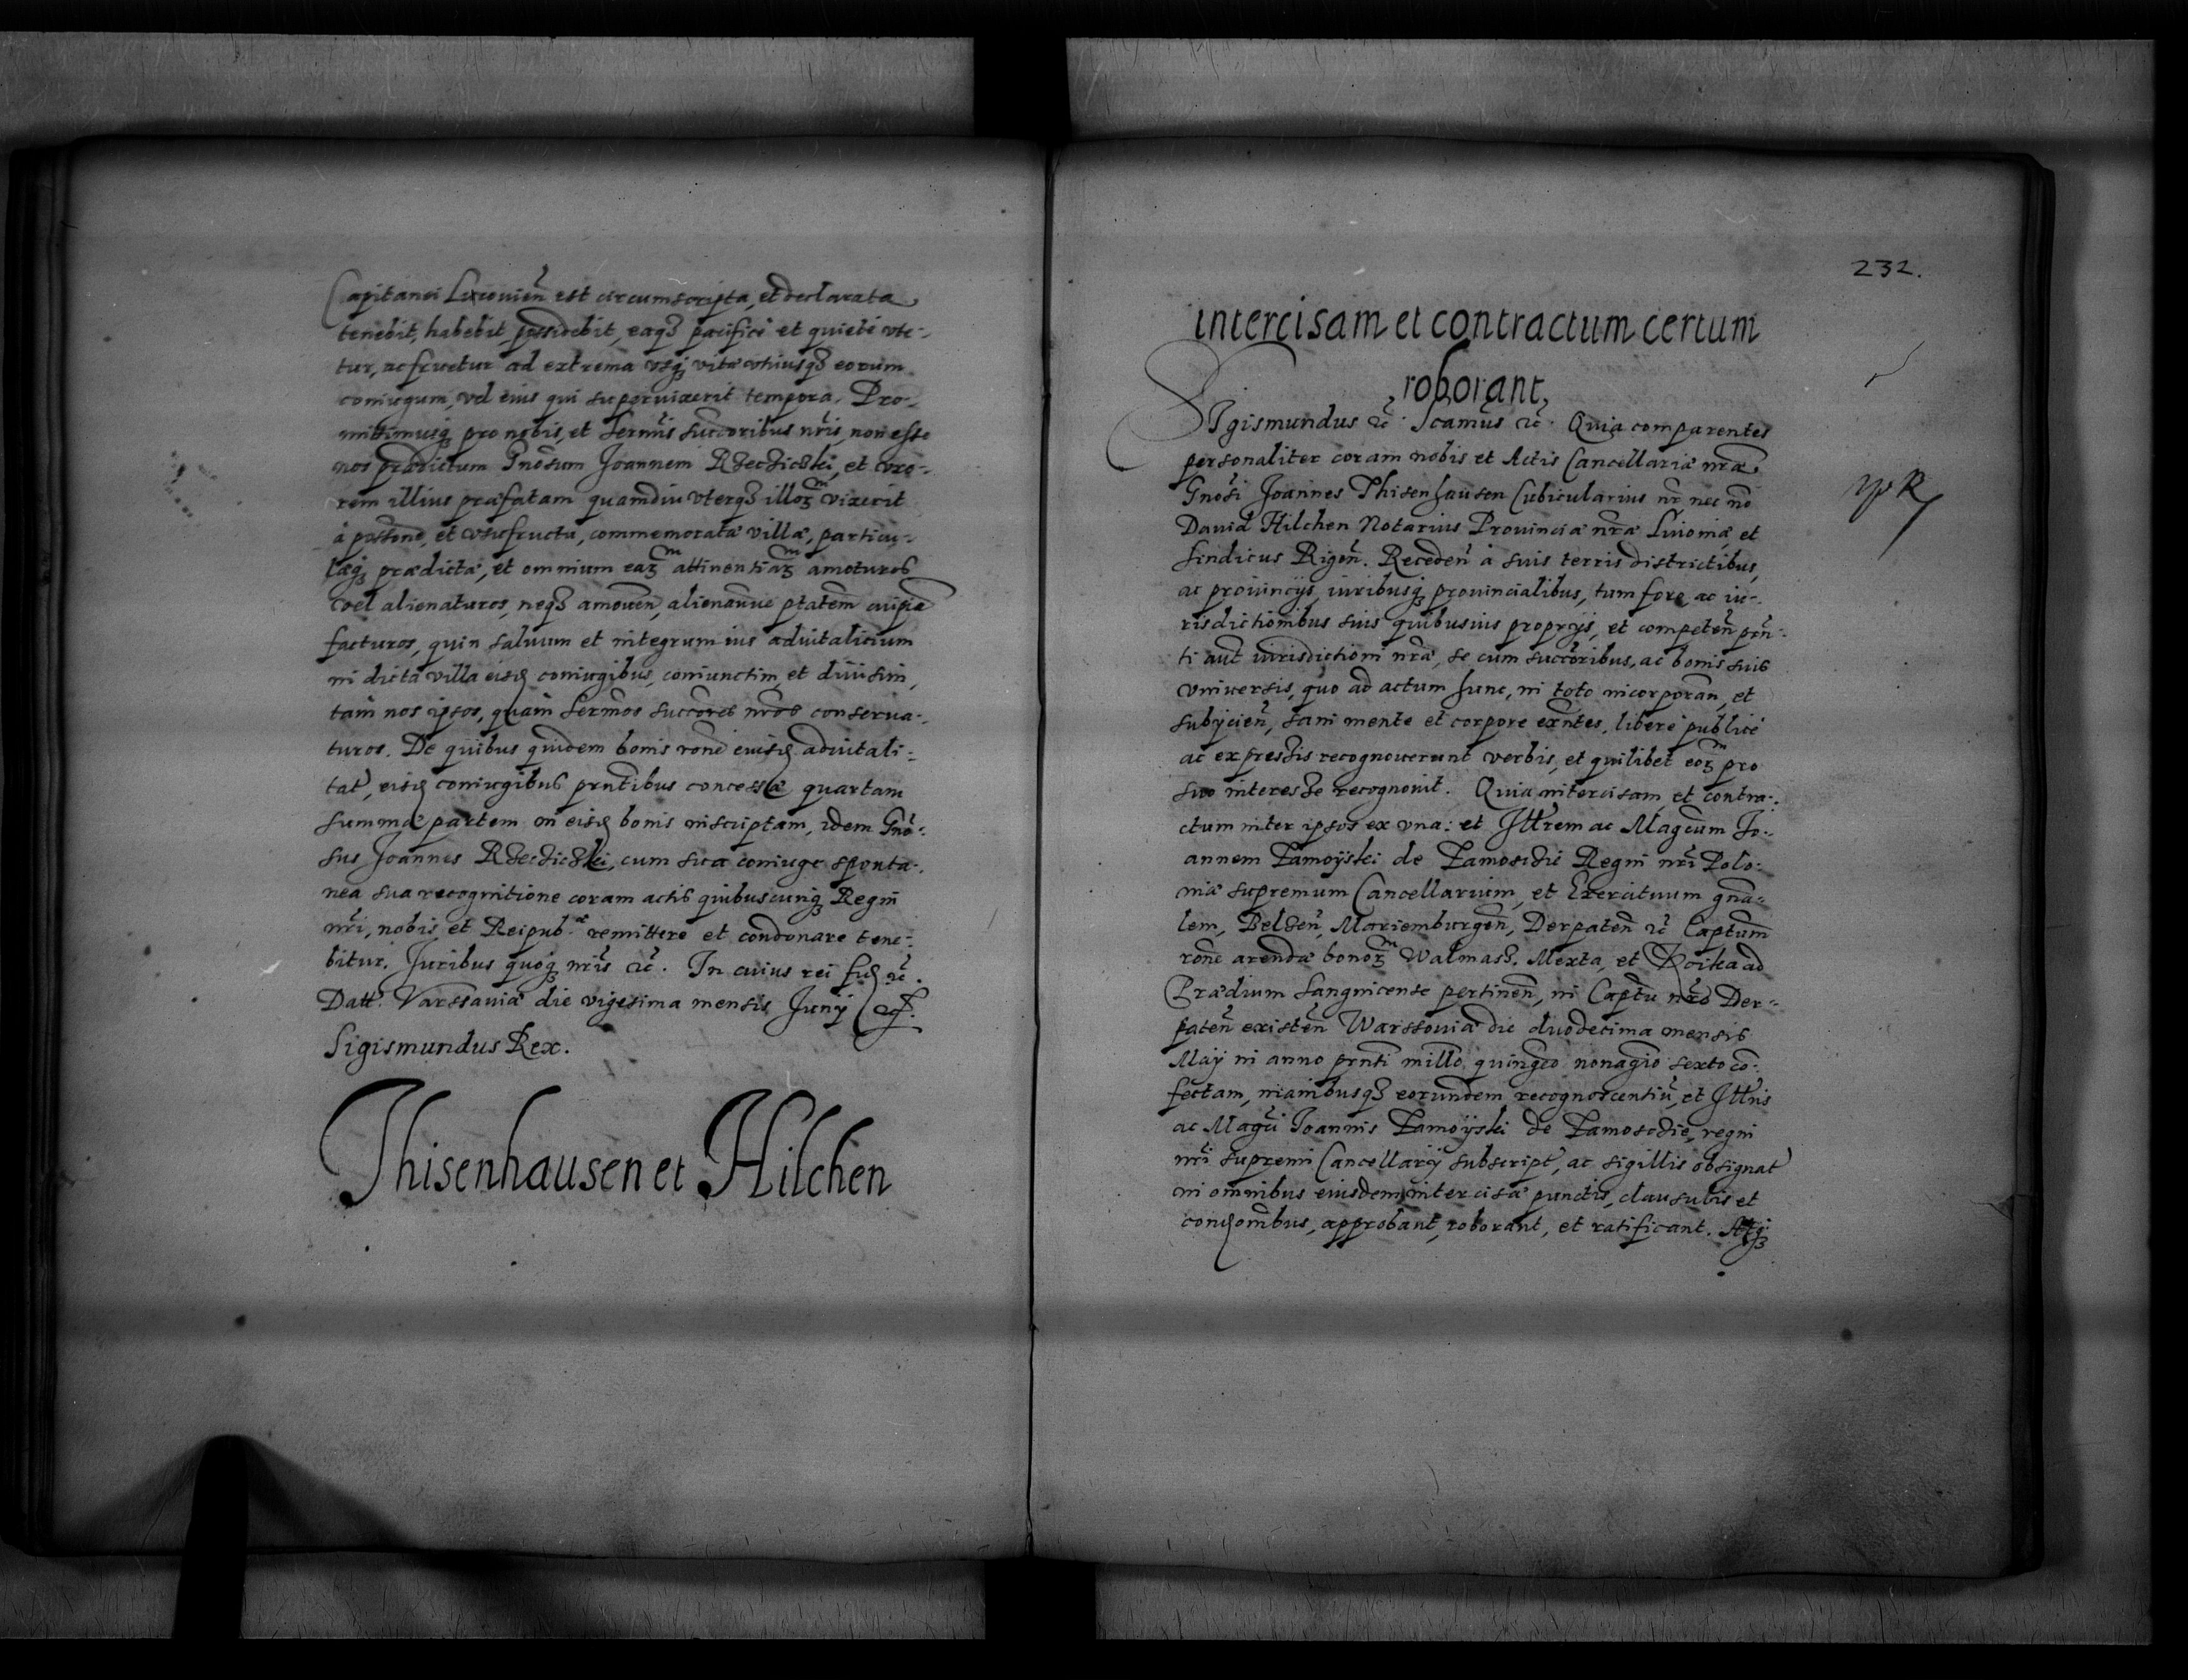 Capitanei Lucouień est circumscripta, et declarata
tenebit, habebit, possidebit, eaq3 pacifice et quiete vte-
tur, ac fruetur ad extrema vsq3 vitæ vtriusq3 eorum
coniugum, vel eius qui superuixerit tempora. Pro-
mittimusq3 pro nobis, et Sermis succoribus nris, non esse
nos prædictum Gnosum Joannem Rzecziczki, et vxo-
rem illius præfatam quamdiu vterq3 illorm vixerit
à possone, et vsufructu, commemoratæ villæ, particu-
læq3 prædictæ, et omnium earm attinentiarm amoturos
vel alienaturos, neq3 amouen, alienanue ptatem cuipia
facturos, quin saluum et integrum ius aduitalitium
in dicta villa eisd coniugibus, coniunctim, et diuisim,
tam nos ipsos, quam Sermos succores nros conserua-
turos. De quibus quidem bonis rone eiusd aduitali-
tat, eisd coniugibus prntibus concessæ quartam
summæ partem in eisd bonis inscriptam, idem Gno-
sus Joannes Rzecziczki, cum sua coniuge sponta-
nea sua recognitione coram actis quibuscunq3 Regni
nri, nobis et Reipub.æ remittere et condonare tene-
bitur. Juribus quoq3 nris etc. In cuius rei fid etc.
Datt. Varssauiæ die vigesima mensis Junij
Sigismundus Rex.
Thisenhausen et Hilchen
232.
intercisam et contractum certum
roborant.
Sigismundus etc. Scamus etc. Quia comparentes
personaliter coram nobis et Actis Cancellariæ nræ
Gnosi Joannes Thisenhausen Cubicularius nr nec no
Dauid Hilchen Notarius Prouinciæ nræ Liuoniæ, et
Sindicus Rigen. Receden à suis terris districtibus,
ac prouincijs, iuribusq3 prouincialibus, tum foro, ac iu-
risdictionibus suis quibusuis proprijs, et competen prn-
ti aut iurisdictioni nræ, se cum succoribus, ac bonis suis
vniuersis, quo ad actum hunc, in toto incorporan, et
subijcien, sani mente et corpore exntes, libere publice
ac expressis recognouerunt verbis, et quilibet eorm pro
suo interesse recognouit. Quia intercisam, et contra-
ctum inter ipsos ex vna: et Jllrem ac Magcum Jo-
annem Zamoÿski de Zamoscie Regni nri Polo-
niæ supremum Cancellarium, et Exercituum gna-
lem, Belzen, Mariemburgen, Derpaten etc Captum
rone arendæ bonorm Walmass. Mexta, et Roika ad
Prædium Sangnicense pertinen, in Captu nro Der-
paten existen Warssouiæ die duodecima mensis
Maij in anno prnti millo quingeo nonagio sexto co-
fectam, manibusq3 eorundem recognoscentiu, et Jllris
ac Magci Joannis Zamoÿski de Zamoscie, regni
nri supremi Cancellarij subscript, ac sigillis obsignat
in omnibus eiusdem intercisæ punctis, clausulis et
condonibus, approbant, roborant, et ratificant. Atq3